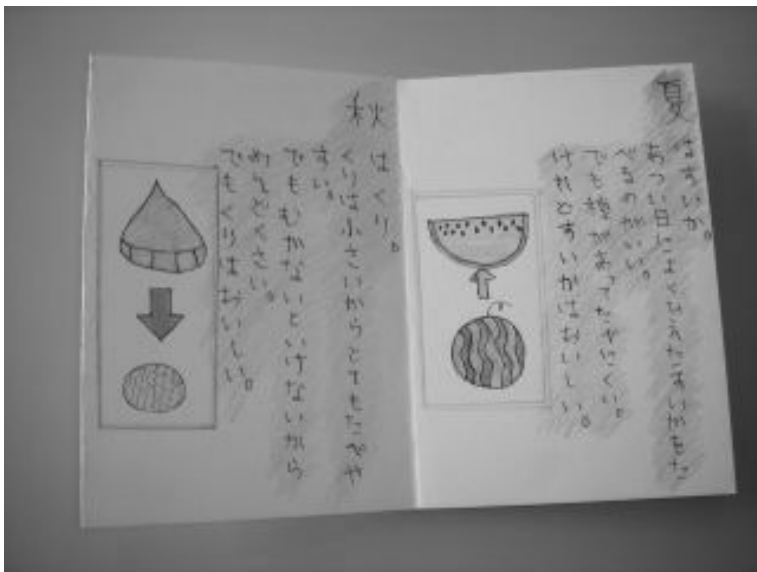 夏はすいか。
あつい日によくひえたすいかをた
べるのがいい。
でも種があってたべにくい。
けれどすいかはおいしい。
秋はくり。
くりは小さいからとてもたべや
すい。
でもむかないといけないから
めんどくさい。
でもくりはおいしい。